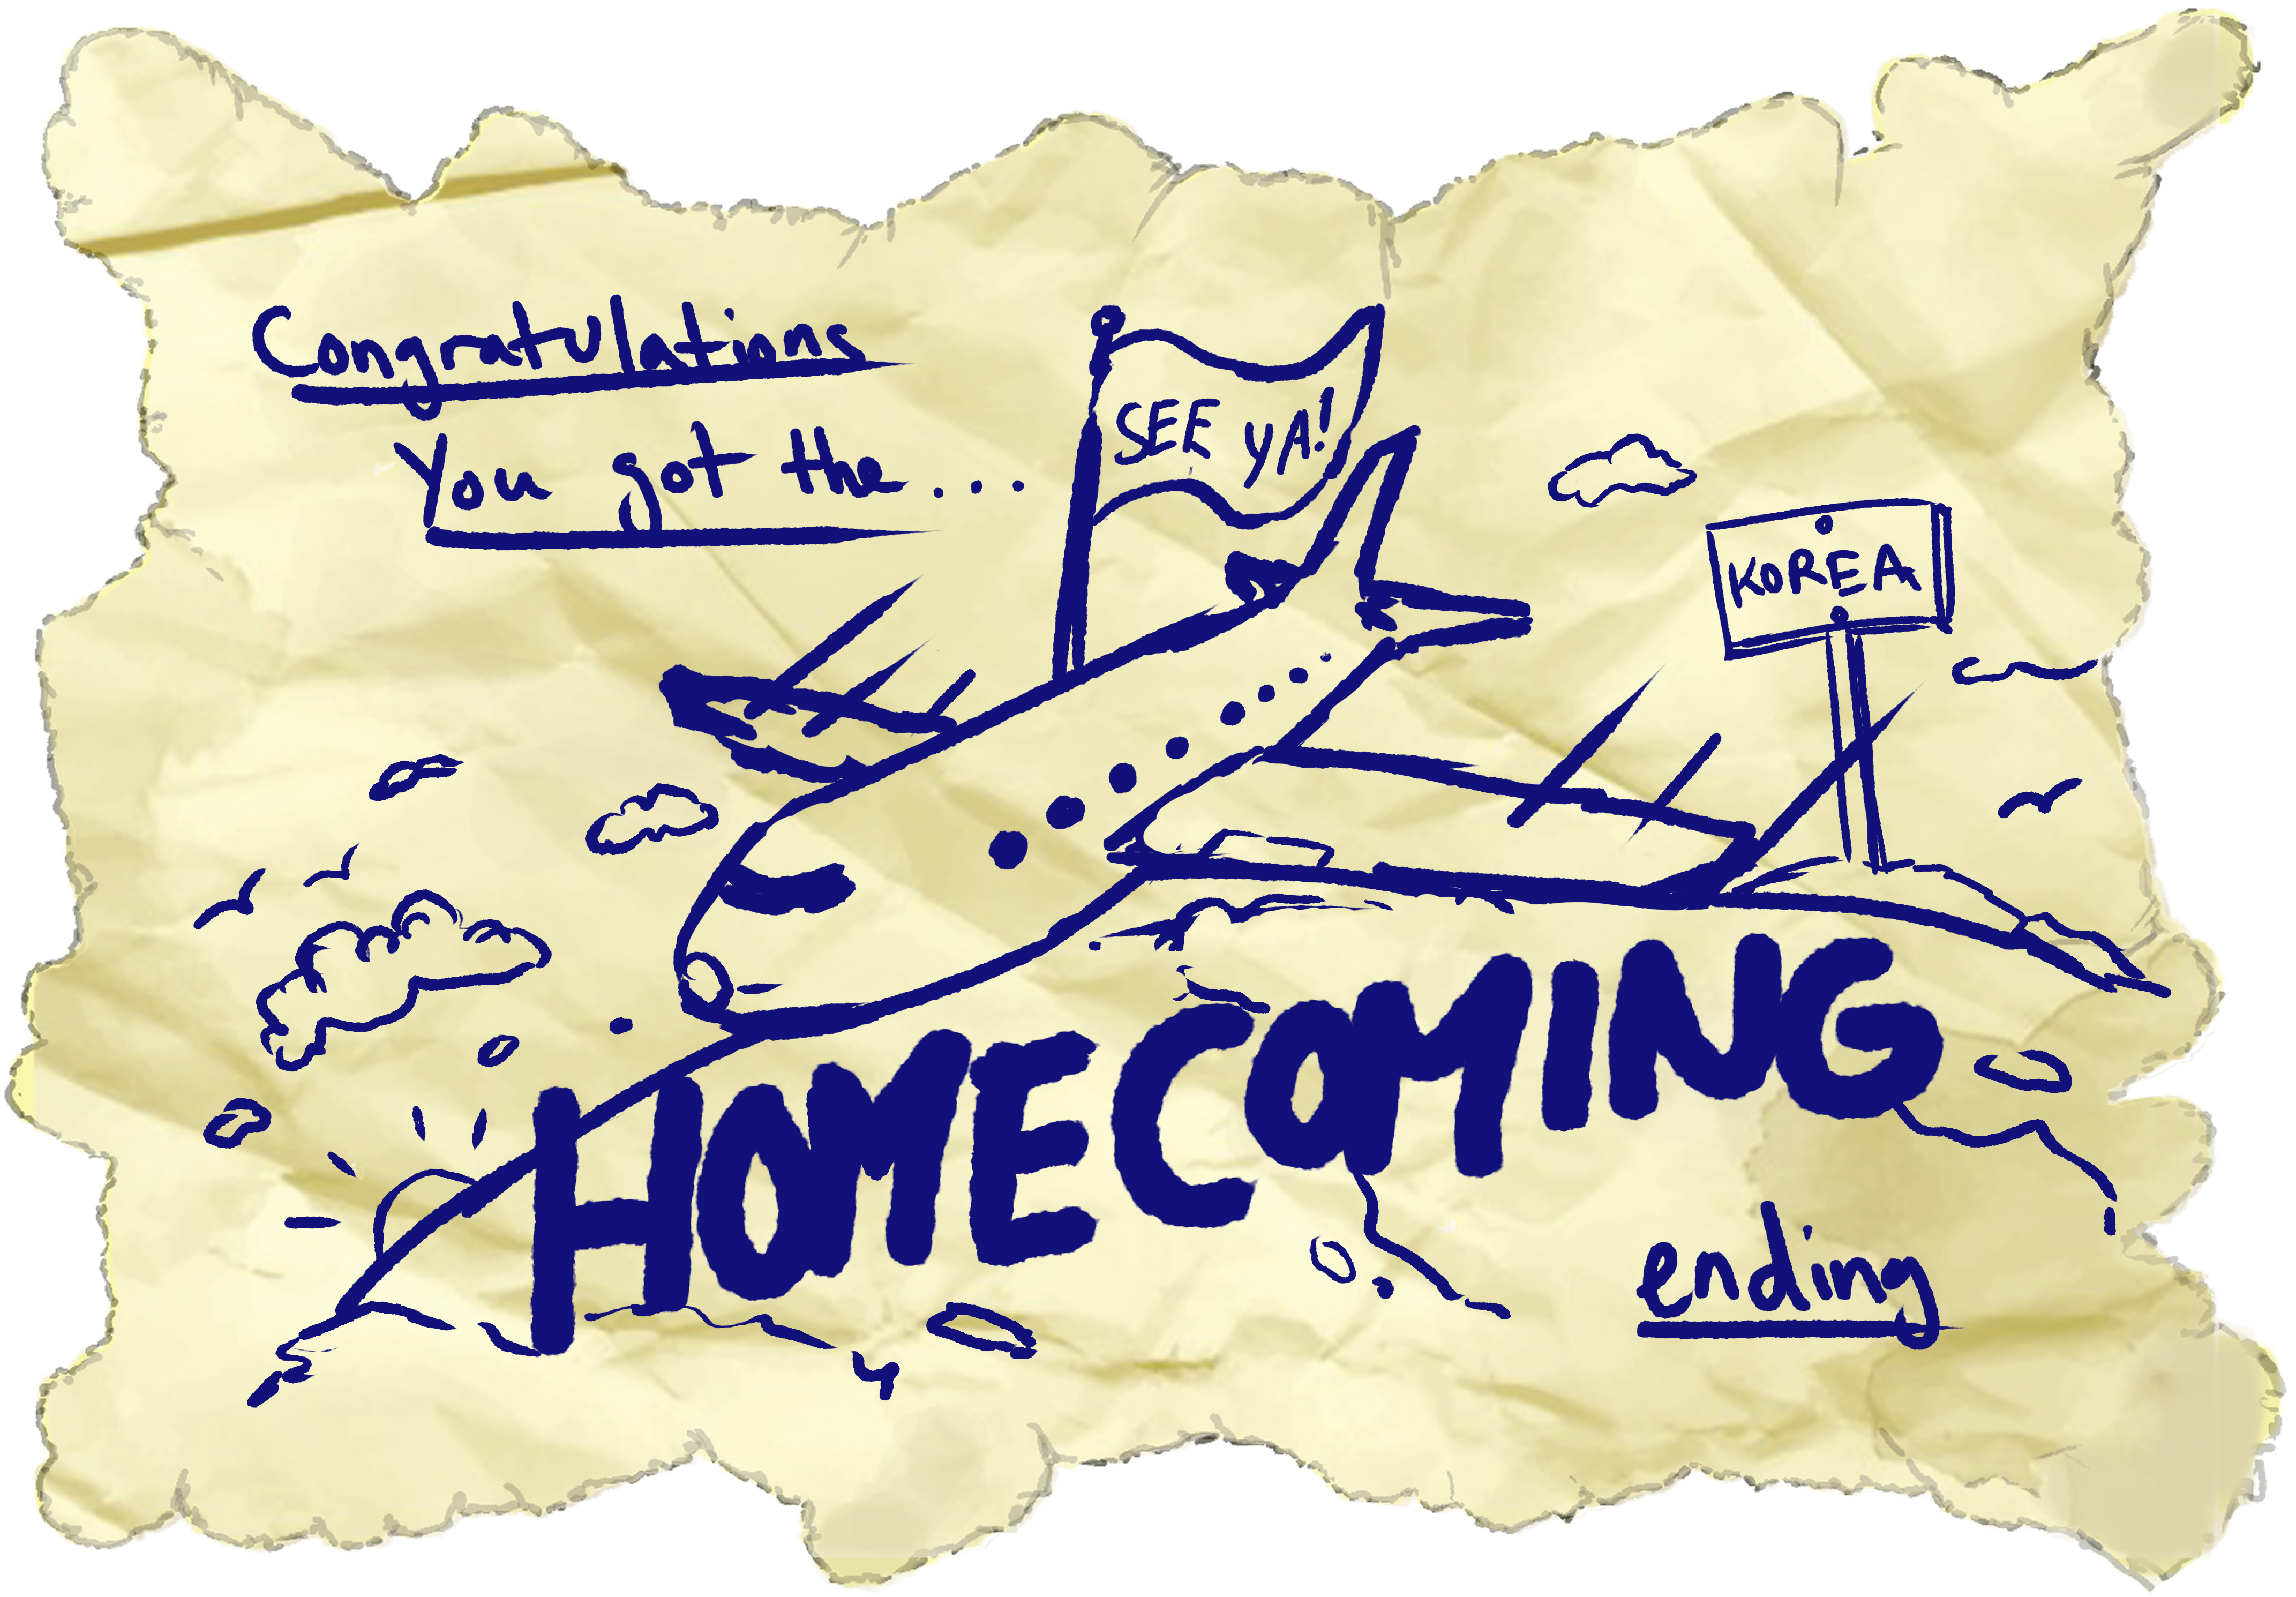 Congratulations
You got the...
SEE YA!
KOREA
HOMECOMING
ending